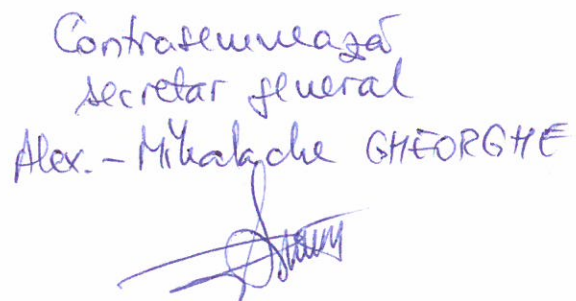 Contrasemnează
secretar general
Alex. - Mihalache GHEORGHE